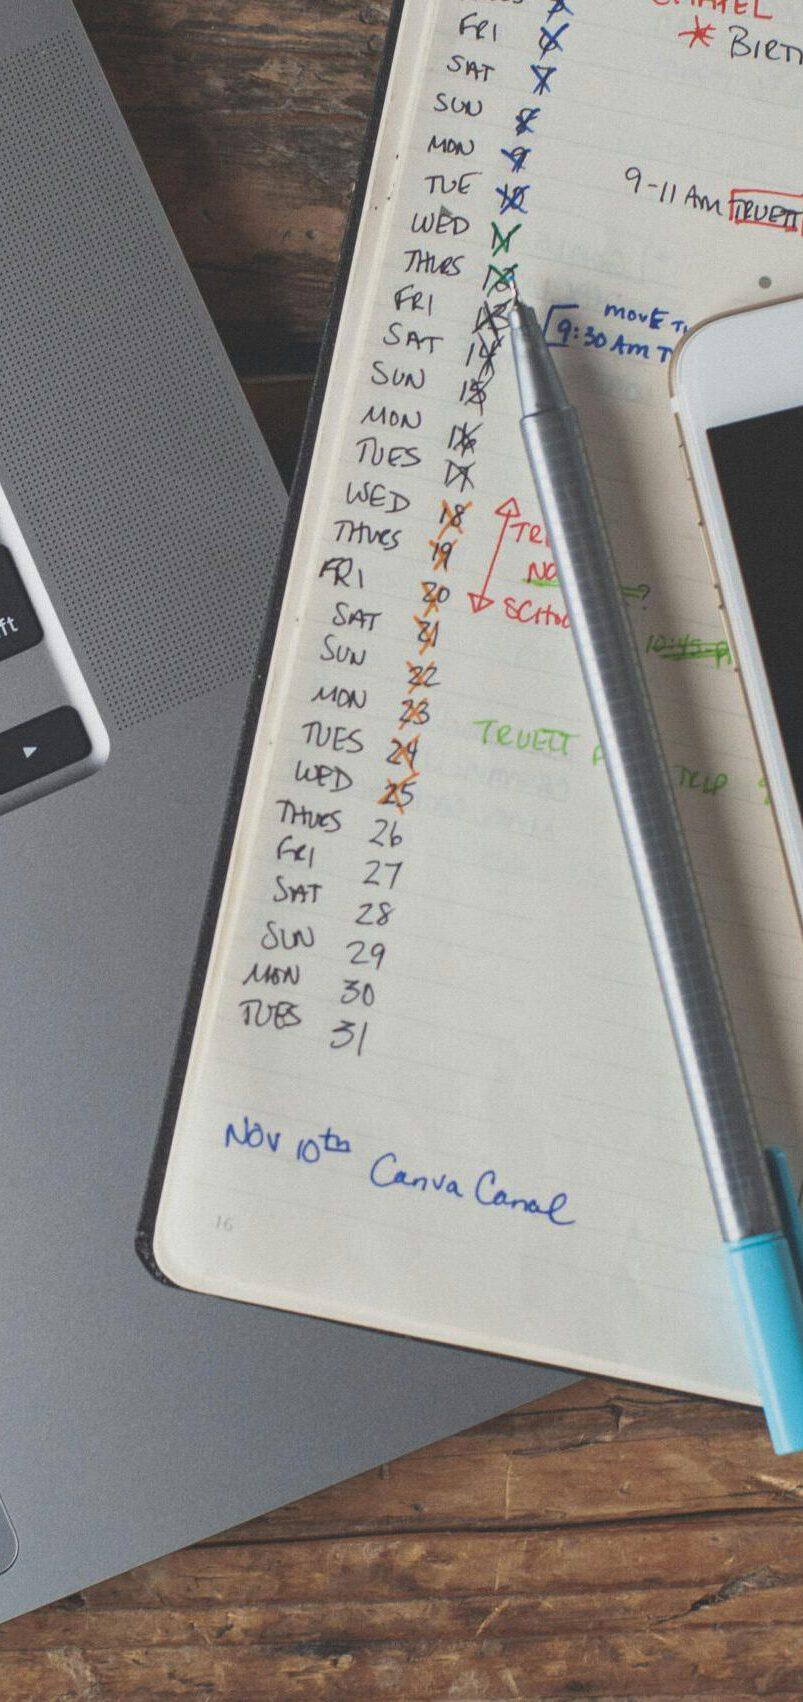 FRI 6
* BIRT
SAT 7
SUN 8
MON 9
TUE 10
9-11 AM TRUETT
WED 11
THURS 12
FRI 13
MOVE
9:30 AM T
SAT 14
SUN 15
MON 16
TUES 17
WED 18
THURS 19
FRI 20
SCHO
SAT 21
10:45
SUN 22
MON 23
TRUETT
TRIP
TUES 24
WED 25
THURS 26
FRI 27
SAT 28
SUN 29
MON 30
TUES 31
NOV 10th Canva Canal
16
ft